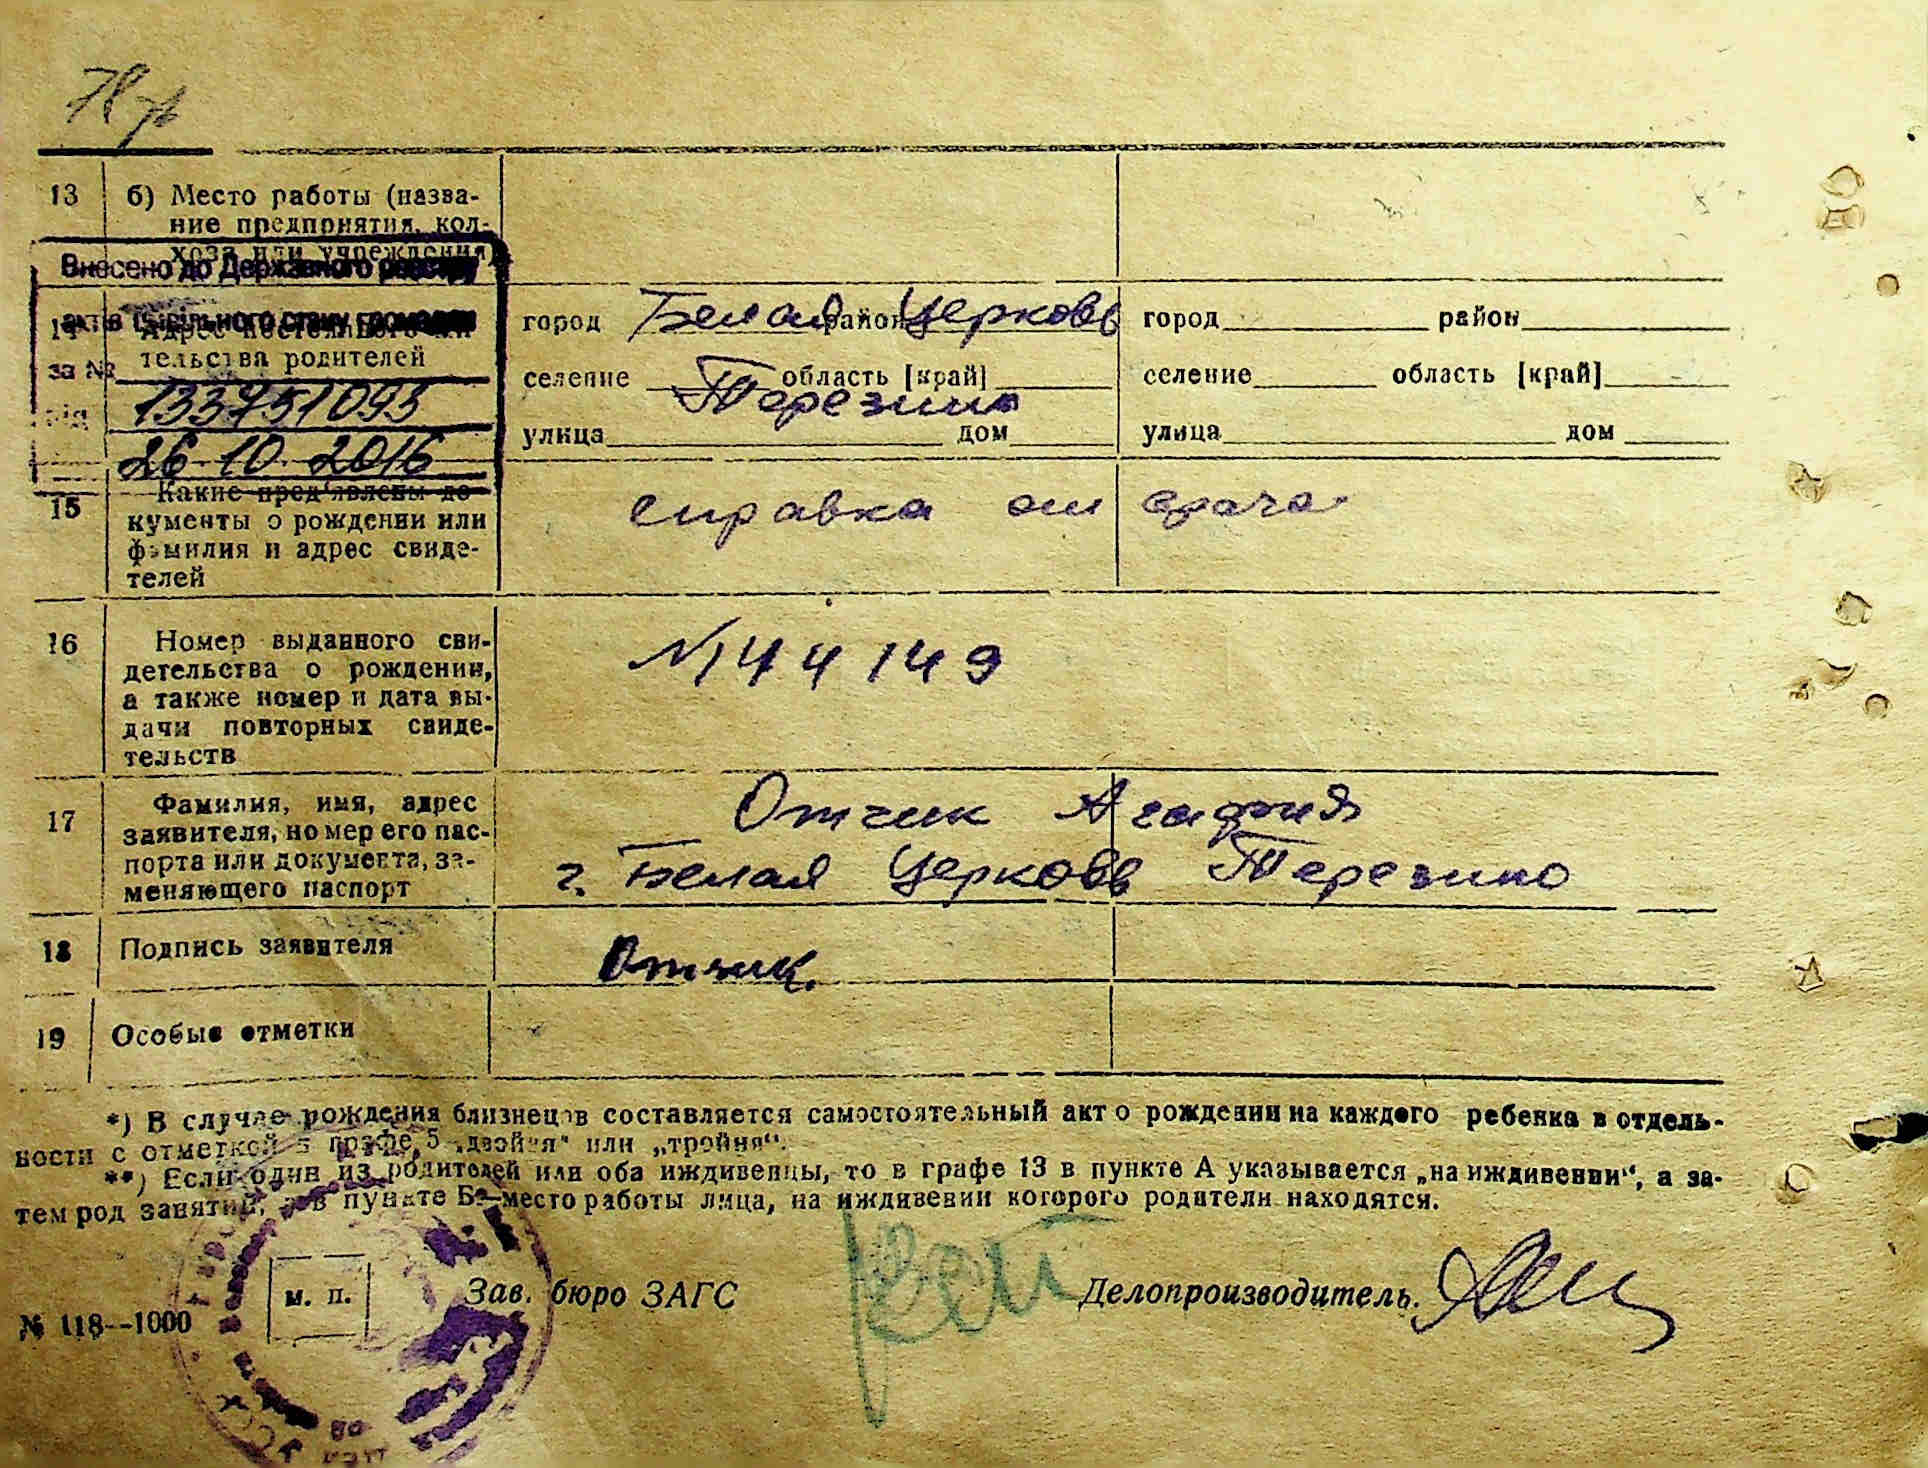 13 б) Место работы (назва-
ние предприятия, кол-
хоза или учреждения)
Внесено до Державного реєстру
актів цивільного стану громадян
за № 133751093
від 26-10-2016
14 Адрес постоянного жи-
тельства родителей
город Белая Церковь район
селение область [край]
Терезино
улица дом
город район
селение область [край]
улица дом
15 Какие пред'явлены до-
кументы о рождении или
фамилия и адрес свиде-
телей
справка от врача
16 Номер выданного сви-
детельства о рождении,
а также номер и дата вы-
дачи повторных свиде-
тельств
№ 144149
17 Фамилия, имя, адрес
заявителя, номер его пас-
порта или документа, за-
меняющего паспорт
Отчик Агафия
г. Белая Церковь Терезино
18 Подпись заявителя
Отчик.
19 Особые отметки
*) В случае рождения близнецов составляется самостоятельный акт о рождении на каждого ребенка в отдель-
ности с отметкой в графе 5 „двойня“ или „тройня“.
**) Если один из родителей или оба иждивенцы, то в графе 13 в пункте А указывается „на иждивении“, а за-
тем род занятий, а в пункте Б—место работы лица, на иждивении которого родители находятся.
м. п.
Зав. бюро ЗАГС
Делопроизводитель.
№ 118--1000